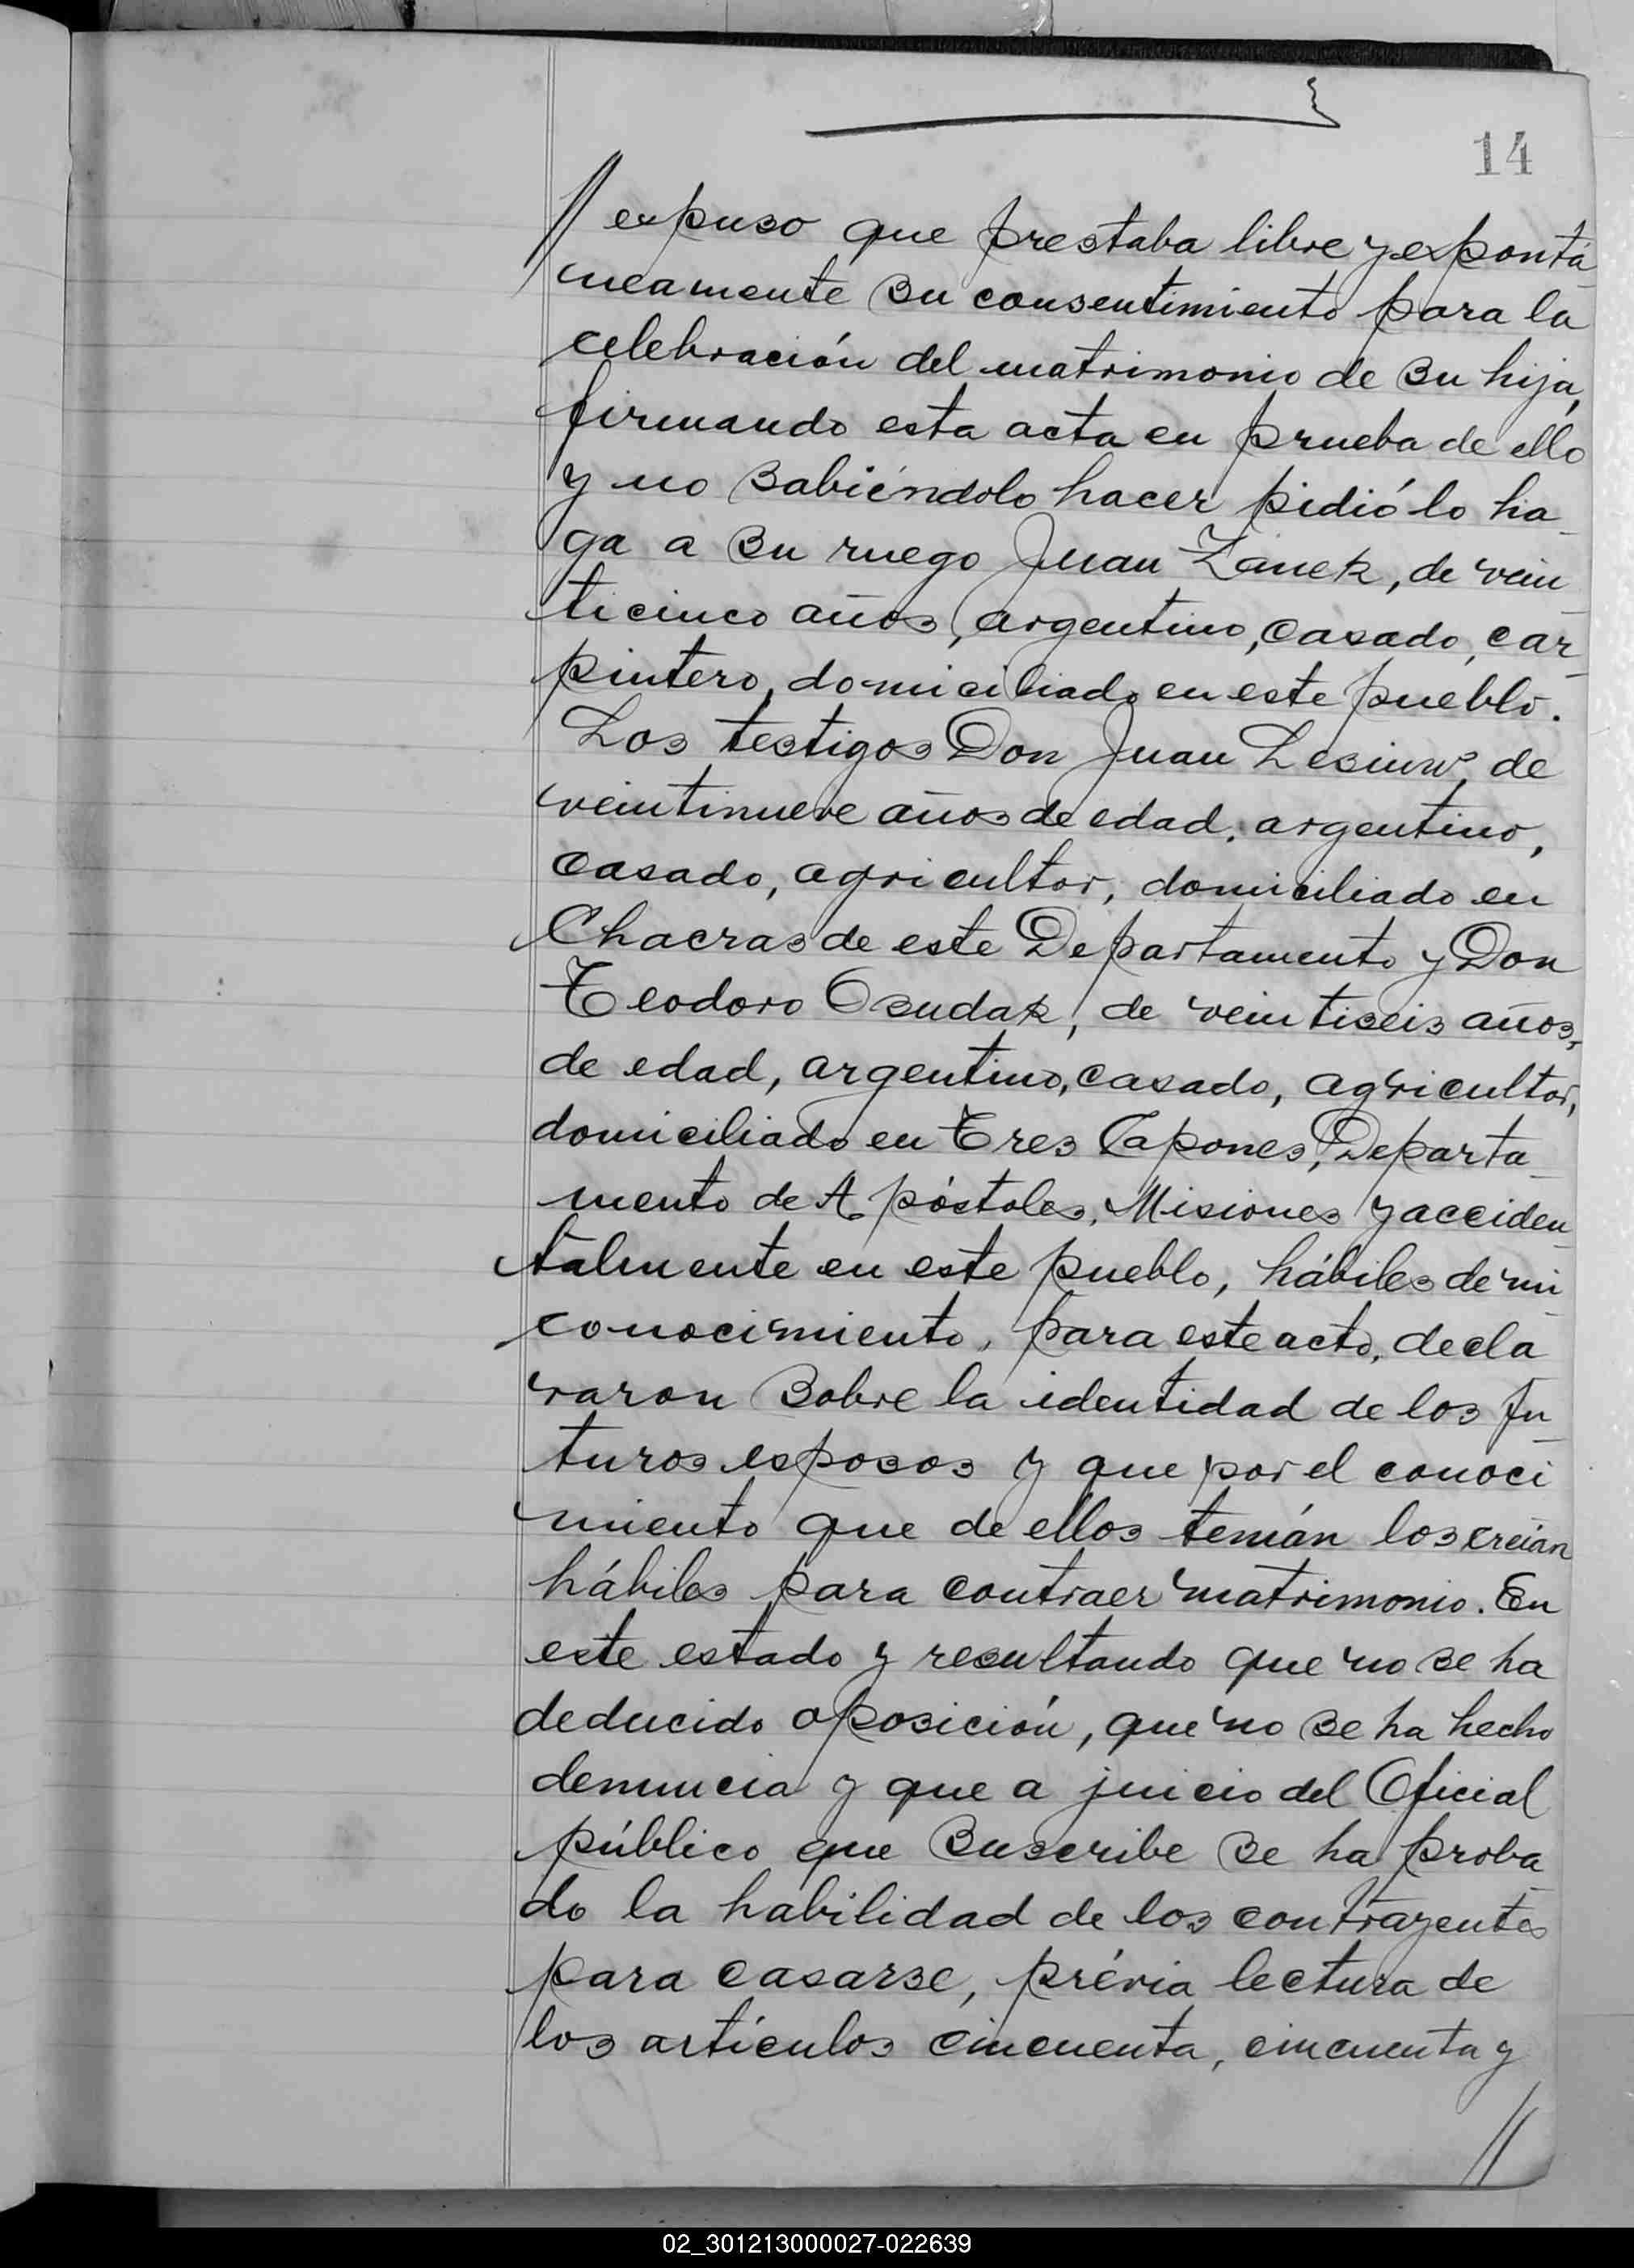 14
// expuso que prestaba libre y expontá
neamente su consentimiento para la
celebración del matrimonio de su hija,
firmando esta acta en prueba de ello
y no sabiéndolo hacer pidió lo ha-
ga a su ruego Juan Zanek, de vein-
ticinco años, argentino, casado, car-
pintero, domiciliado en este pueblo.
Los testigos Don Juan Lesiuw, de
veintinueve años de edad, argentino,
casado, agricultor, domiciliado en
Chacras de este Departamento y Don
Teodoro Osudak, de veintiseis años,
de edad, argentino, casado, agricultor,
domiciliado en Tres Capones, Departa-
mento de Apóstoles, Misiones y acciden-
talmente en este pueblo, hábiles de mi
conocimiento, para este acto, decla
raron sobre la identidad de los fu-
turos esposos y que por el conoci
miento que de ellos tenían los creían
hábiles para contraer matrimonio. En
este estado y resultando que no se ha
deducido oposición, que no se ha hecho
denuncia y que a juicio del Oficial
público que suscribe se ha proba-
do la habilidad de los contrayentes
para casarse, prévia lectura de
los artículos cincuenta, cincuenta y
//
02_301213000027-022639